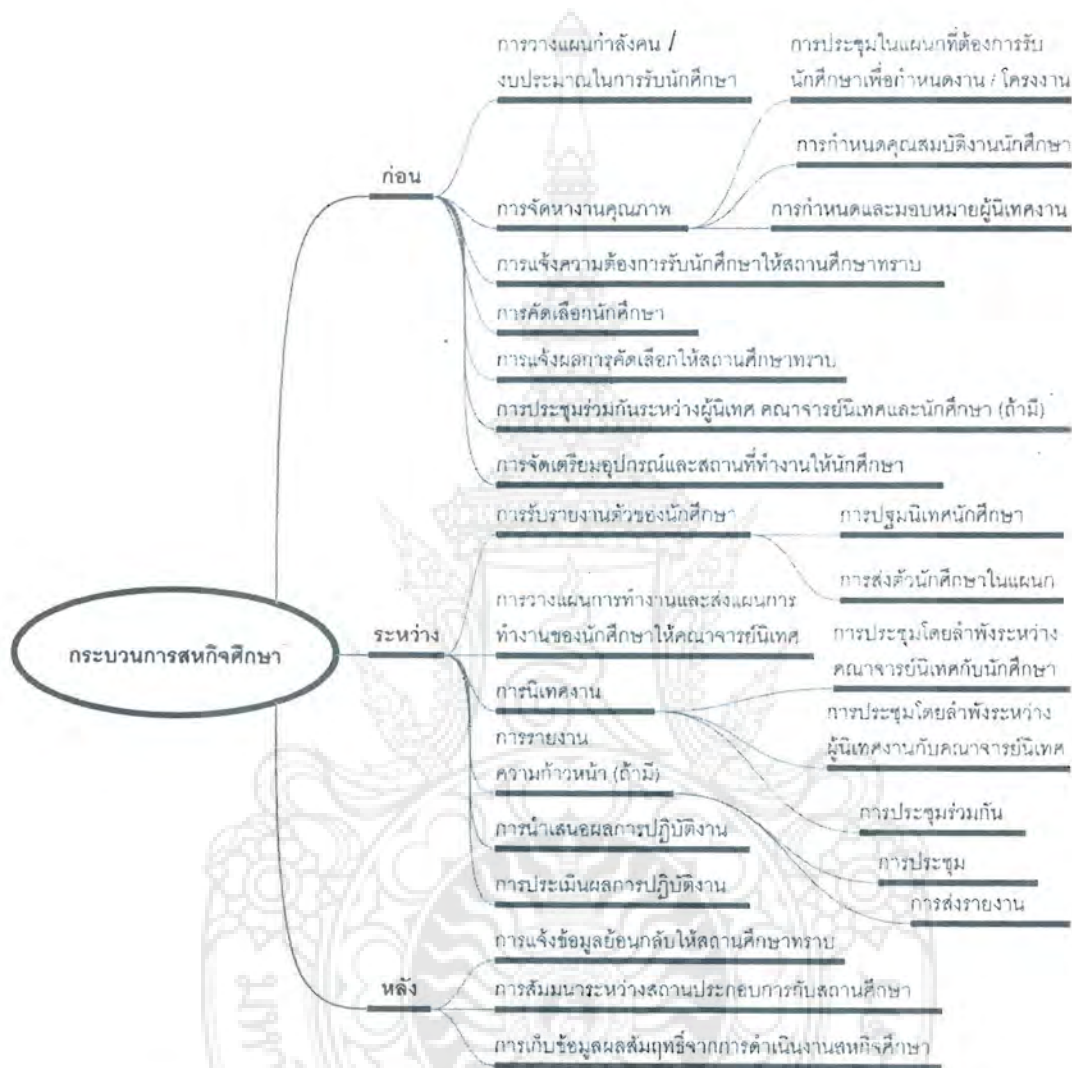 การวางแผนกำลังคน /
งบประมาณในการรับนักศึกษา
การประชุมในแผนกที่ต้องการรับ
นักศึกษาเพื่อกำหนดงาน / โครงงาน
การกำหนดคุณสมบัติงานนักศึกษา
ก่อน
การจัดหางานคุณภาพ
การกำหนดและมอบหมายผู้นิเทศงาน
การแจ้งความต้องการรับนักศึกษาให้สถานศึกษาทราบ
การคัดเลือกนักศึกษา
การแจ้งผลการคัดเลือกให้สถานศึกษาทราบ
การประชุมร่วมกันระหว่างผู้นิเทศ คณาจารย์นิเทศและนักศึกษา (ถ้ามี)
การจัดเตรียมอุปกรณ์และสถานที่ทำงานให้นักศึกษา
การรับรายงานตัวของนักศึกษา
การปฐมนิเทศนักศึกษา
การส่งตัวนักศึกษาในแผนก
กระบวนการสหกิจศึกษา
ระหว่าง
การวางแผนการทำงานและส่งแผนการ
ทำงานของนักศึกษาให้คณาจารย์นิเทศ
การประชุมโดยลำพังระหว่าง
คณาจารย์นิเทศกับนักศึกษา
การนิเทศงาน
การประชุมโดยลำพังระหว่าง
ผู้นิเทศงานกับคณาจารย์นิเทศ
การรายงาน
ความก้าวหน้า (ถ้ามี)
การประชุมร่วมกัน
การนำเสนอผลการปฏิบัติงาน
การประชุม
การประเมินผลการปฏิบัติงาน
การส่งรายงาน
การแจ้งข้อมูลย้อนกลับให้สถานศึกษาทราบ
หลัง
การสัมมนาระหว่างสถานประกอบการกับสถานศึกษา
การเก็บข้อมูลผลสัมฤทธิ์จากการดำเนินงานสหกิจศึกษา